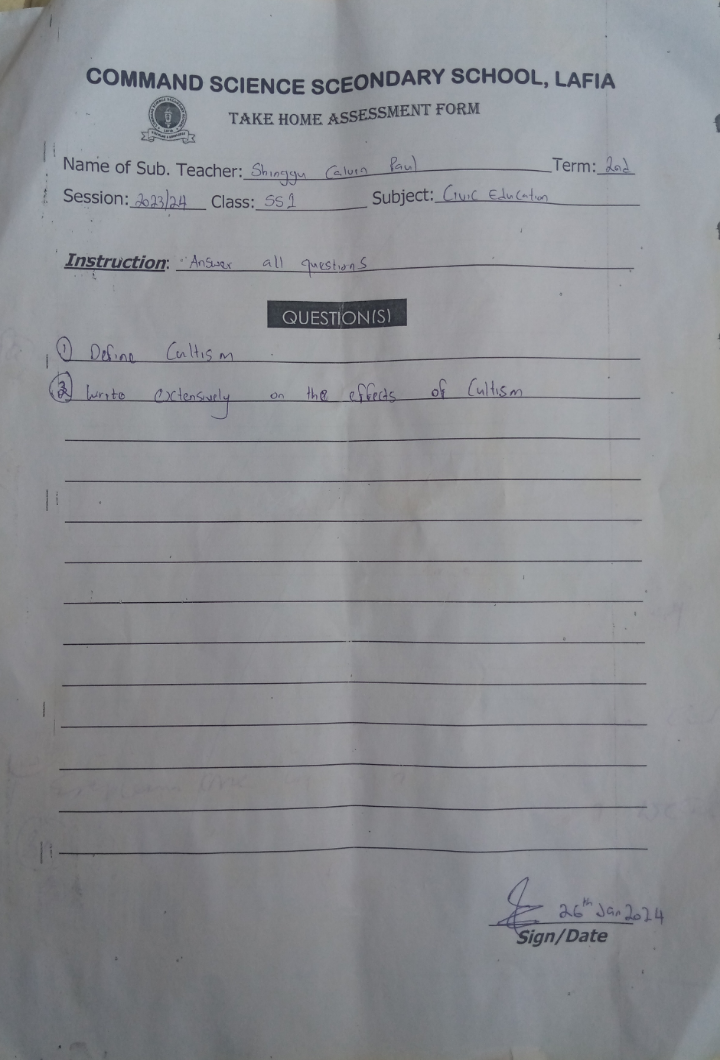 COMMAND SCIENCE SCEONDARY SCHOOL, LAFIA
TAKE HOME ASSESSMENT FORM
Name of Sub. Teacher: Shinggu Calvin Paul Term: 2nd
Session: 2023/24 Class: SS1 Subject: Civic Education
Instruction: Answer all questions
QUESTION(S)
1 Define Cultism
2 Write extensively on the effects of Cultism
26th Jan 2024
Sign/Date